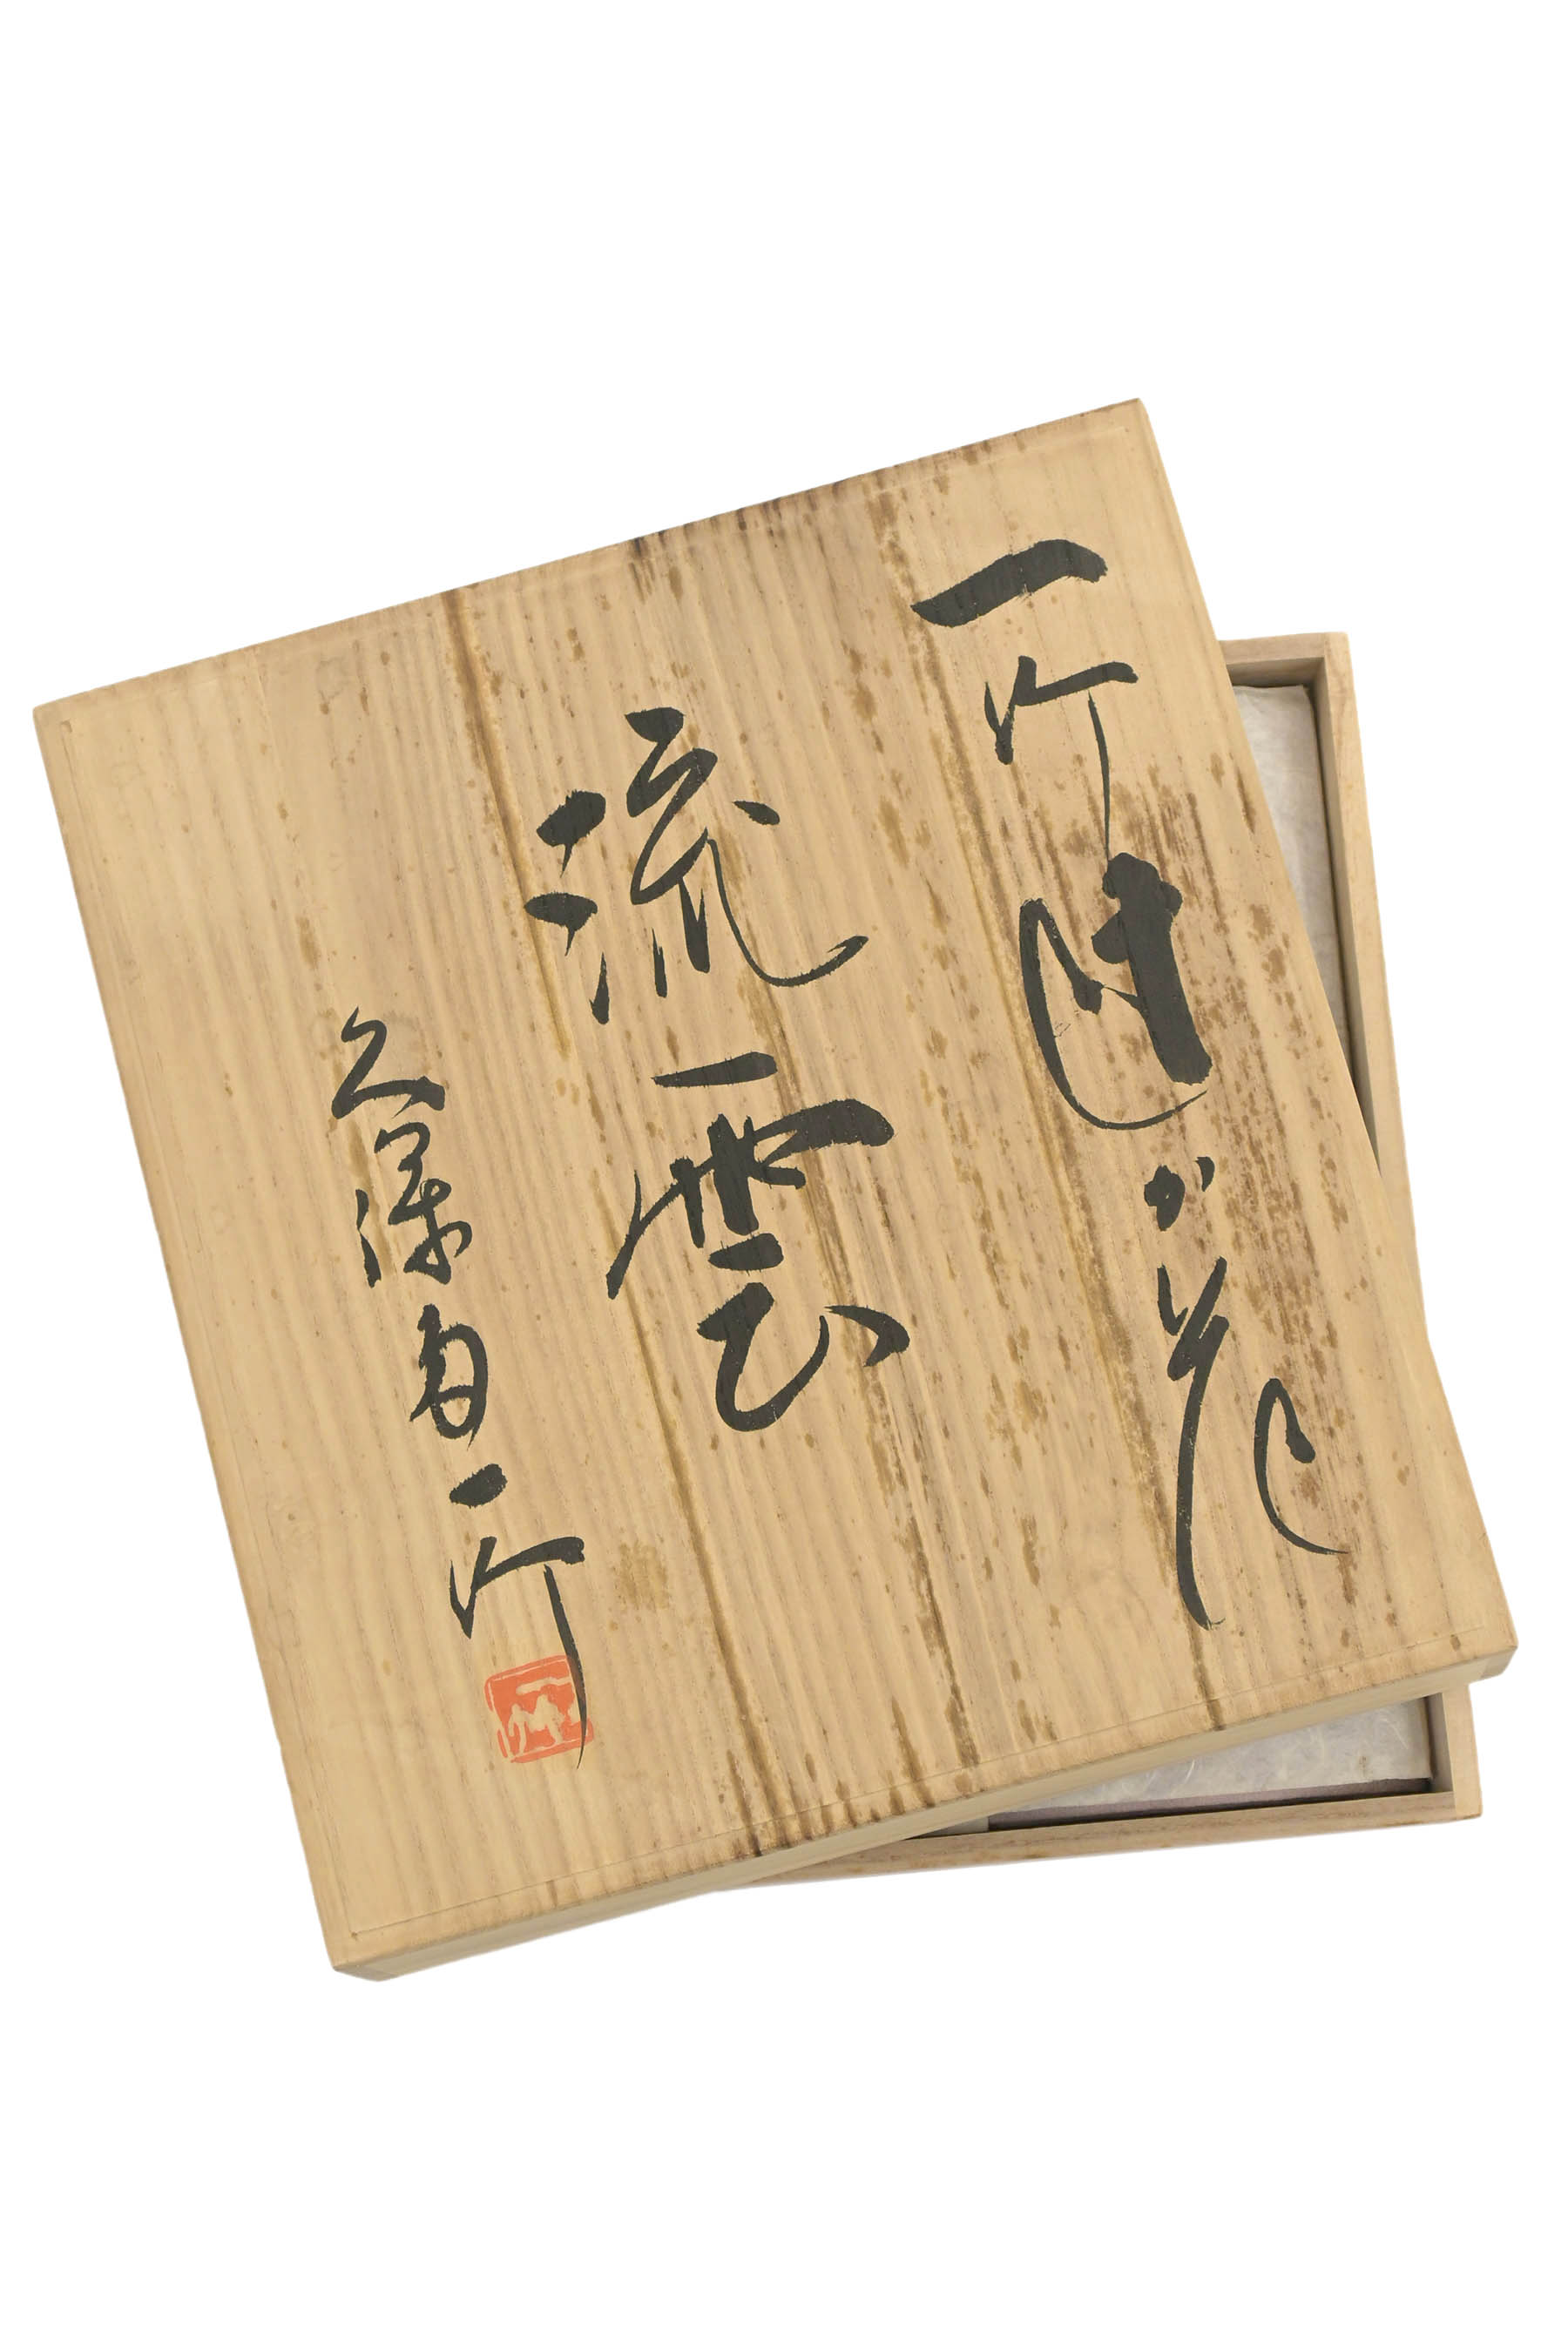 一竹辻が花
流雲
久保田一竹
一竹